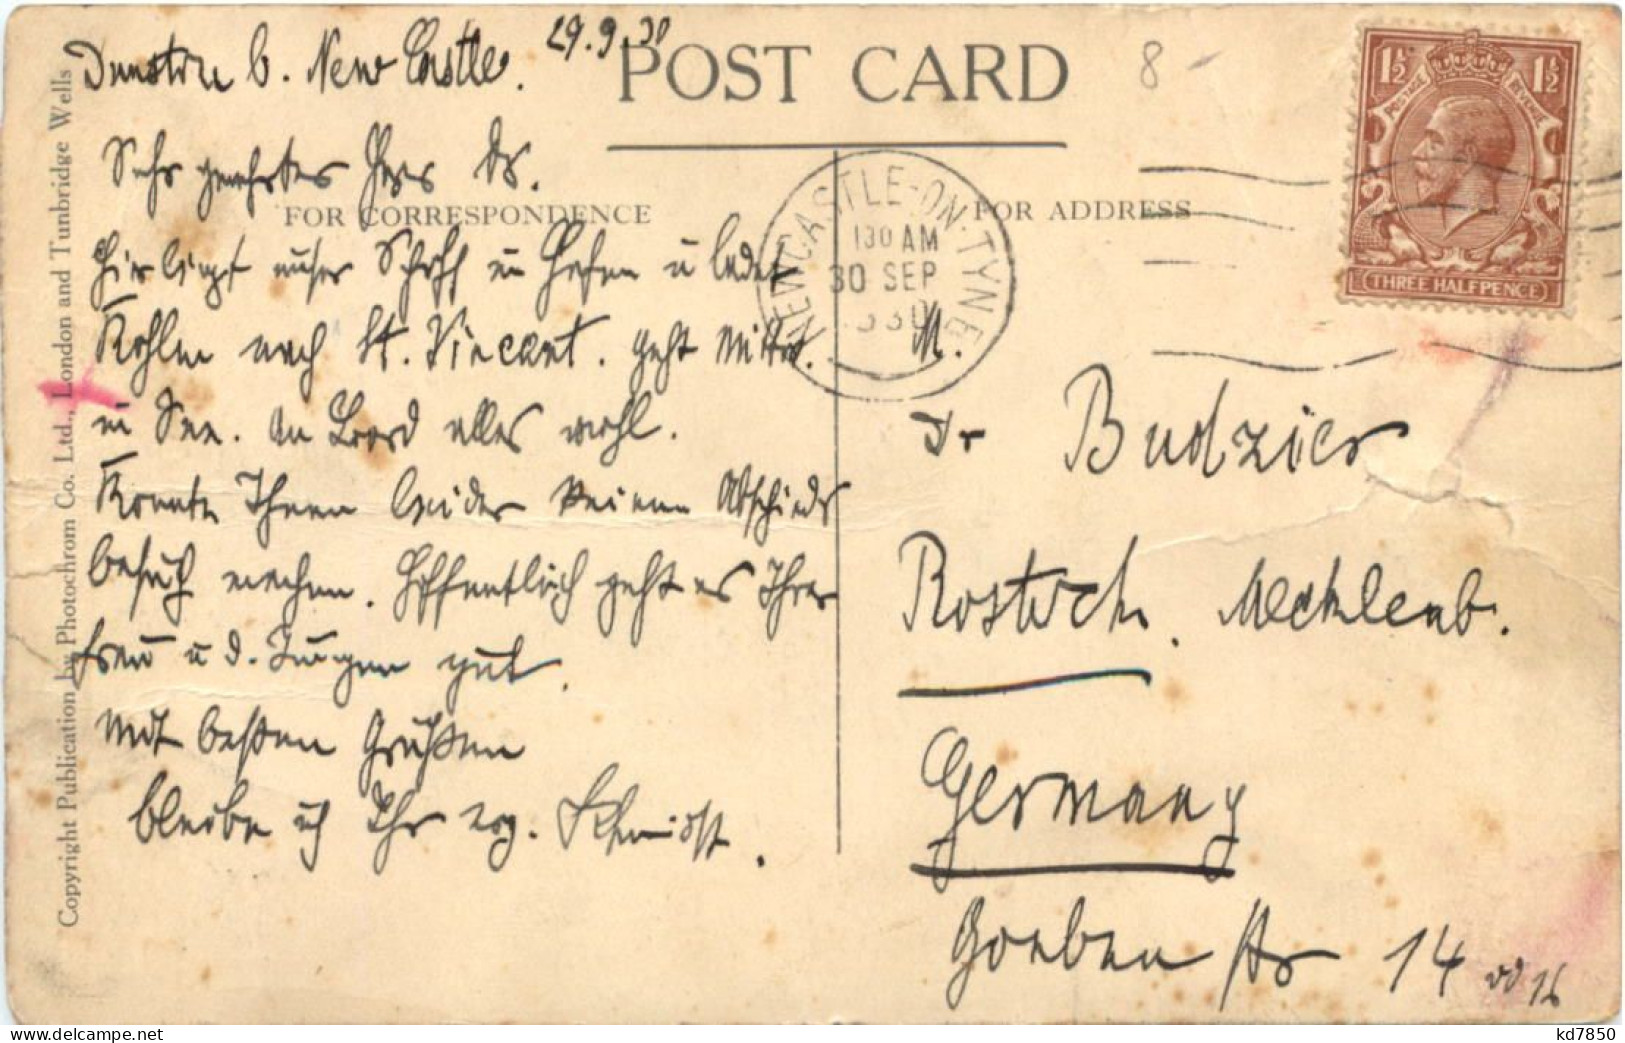 Dunston b. New Castle. 29.9.30
POST CARD
8 -
1½ 1½
POSTAGE REVENUE
THREE HALFPENCE
Sehr geehrter Herr Dr.
FOR CORRESPONDENCE
FOR ADDRESS
NEWCASTLE-ON-TYNE
130 AM
30 SEP
1930
Hier liegt unser Schiff im Hafen u ladet
Kohlen nach St. Vincent. geht Mittw.
in See. An Bord alles wohl.
Konnte Ihnen leider keinen Abschieds
besuch machen. Hoffentlich geht es Ihrer
Frau u d. Jungen gut.
Mit besten Grüßen
bleibe ich Ihr erg.
M.
Dr Budzier
Rostock. Mecklenb.
Germany
Goeben Str 14 od 16
Copyright Publication by Photochrom Co. Ltd., London and Tunbridge Wells
kd7850